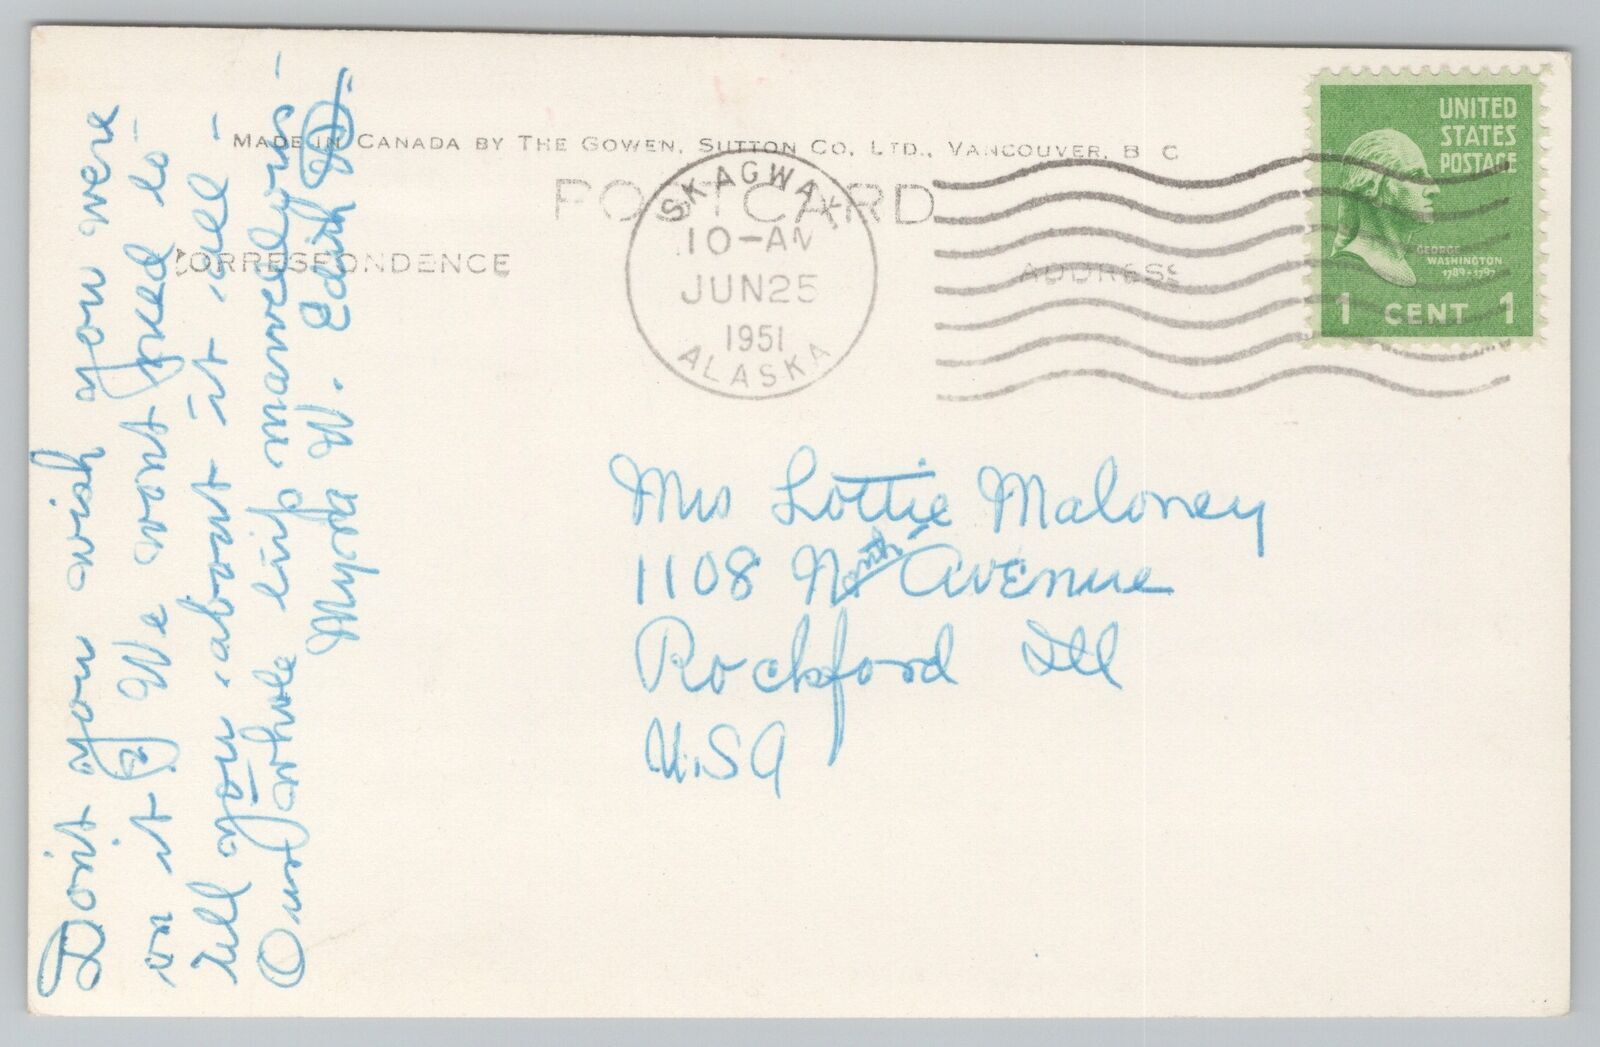 MADE IN CANADA BY THE GOWEN, SUTTON CO, LTD., VANCOUVER, B C
POSTCARD
CORRESPONDENCE
ADDRESS
SKAGWAY
10-AM
JUN 25
1951
ALASKA
UNITED
STATES
POSTAGE
GEORGE
WASHINGTON
1789-1797
1 CENT 1
Don't you wish you were
on it? We wont need to
tell you about it all -
Our whole trip marvelous -
Myra W. Edith
Mrs Lottie Maloney
1108 North Avenue
Rockford Ill
U.SA